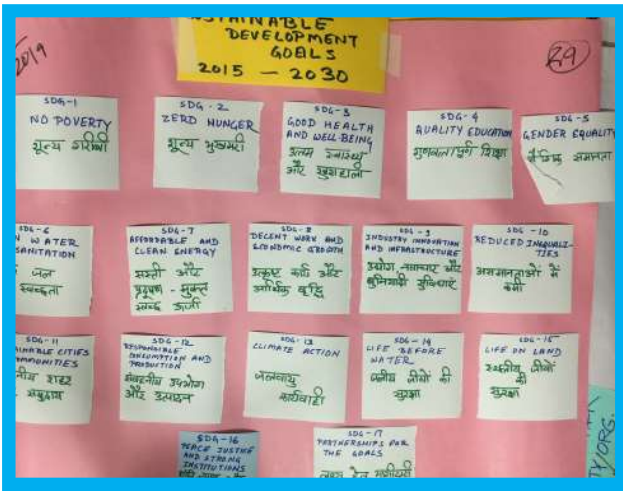 SUSTAINABLE
DEVELOPMENT
GOBLS
2015 - 2030
2019
29
SDG-1
NO POVERTY
शून्य गरीबी
SDG-2
ZERO HUNGER
शून्य भुखमरी
SDG-3
GOOD HEALTH
AND WELL-BEING
उत्तम स्वास्थ्य
और खुशहाली
SDG-4
QUALITY EDUCATION
गुणवत्तापूर्ण शिक्षा
SDG-5
GENDER EQUALITY
समानता
SDG-6
WATER
SANITATION
जल
स्वच्छता
SDG-7
AFFORDABLE AND
CLEAN ENERGY
सस्ती और
प्रदूषण - मुक्त
स्वच्छ ऊर्जा
SDG-8
DECENT WORK AND
ECONOMIC GROWTH
उत्कृष्ट कार्य और
आर्थिक वृद्धि
SDG-9
INDUSTRY INNOVATION
AND INFRASTRUCTURE
उद्योग नवाचार और
बुनियादी सुविधाएं
SDG-10
REDUCED INEQUALI-
TIES
असमानताओं में
कमी
SDG-11
CITIES
COMMUNITIES
शहर
समुदाय
SDG-12
RESPONSIBLE
CONSUMPTION AND
PRODUCTION
संवहनीय उपभोग
और उत्पादन
SDG-13
CLIMATE ACTION
जलवायु
कार्यवाही
SDG-14
LIFE BEFORE
WATER
जलीय जीवों की
सुरक्षा
SDG-15
LIFE ON LAND
स्थलीय जीवों
की
सुरक्षा
SDG-16
PEACE JUSTICE
AND STRONG
INSTITUTIONS
SDG-17
PARTNERSHIPS FOR
THE GOALS
TY/ORG.